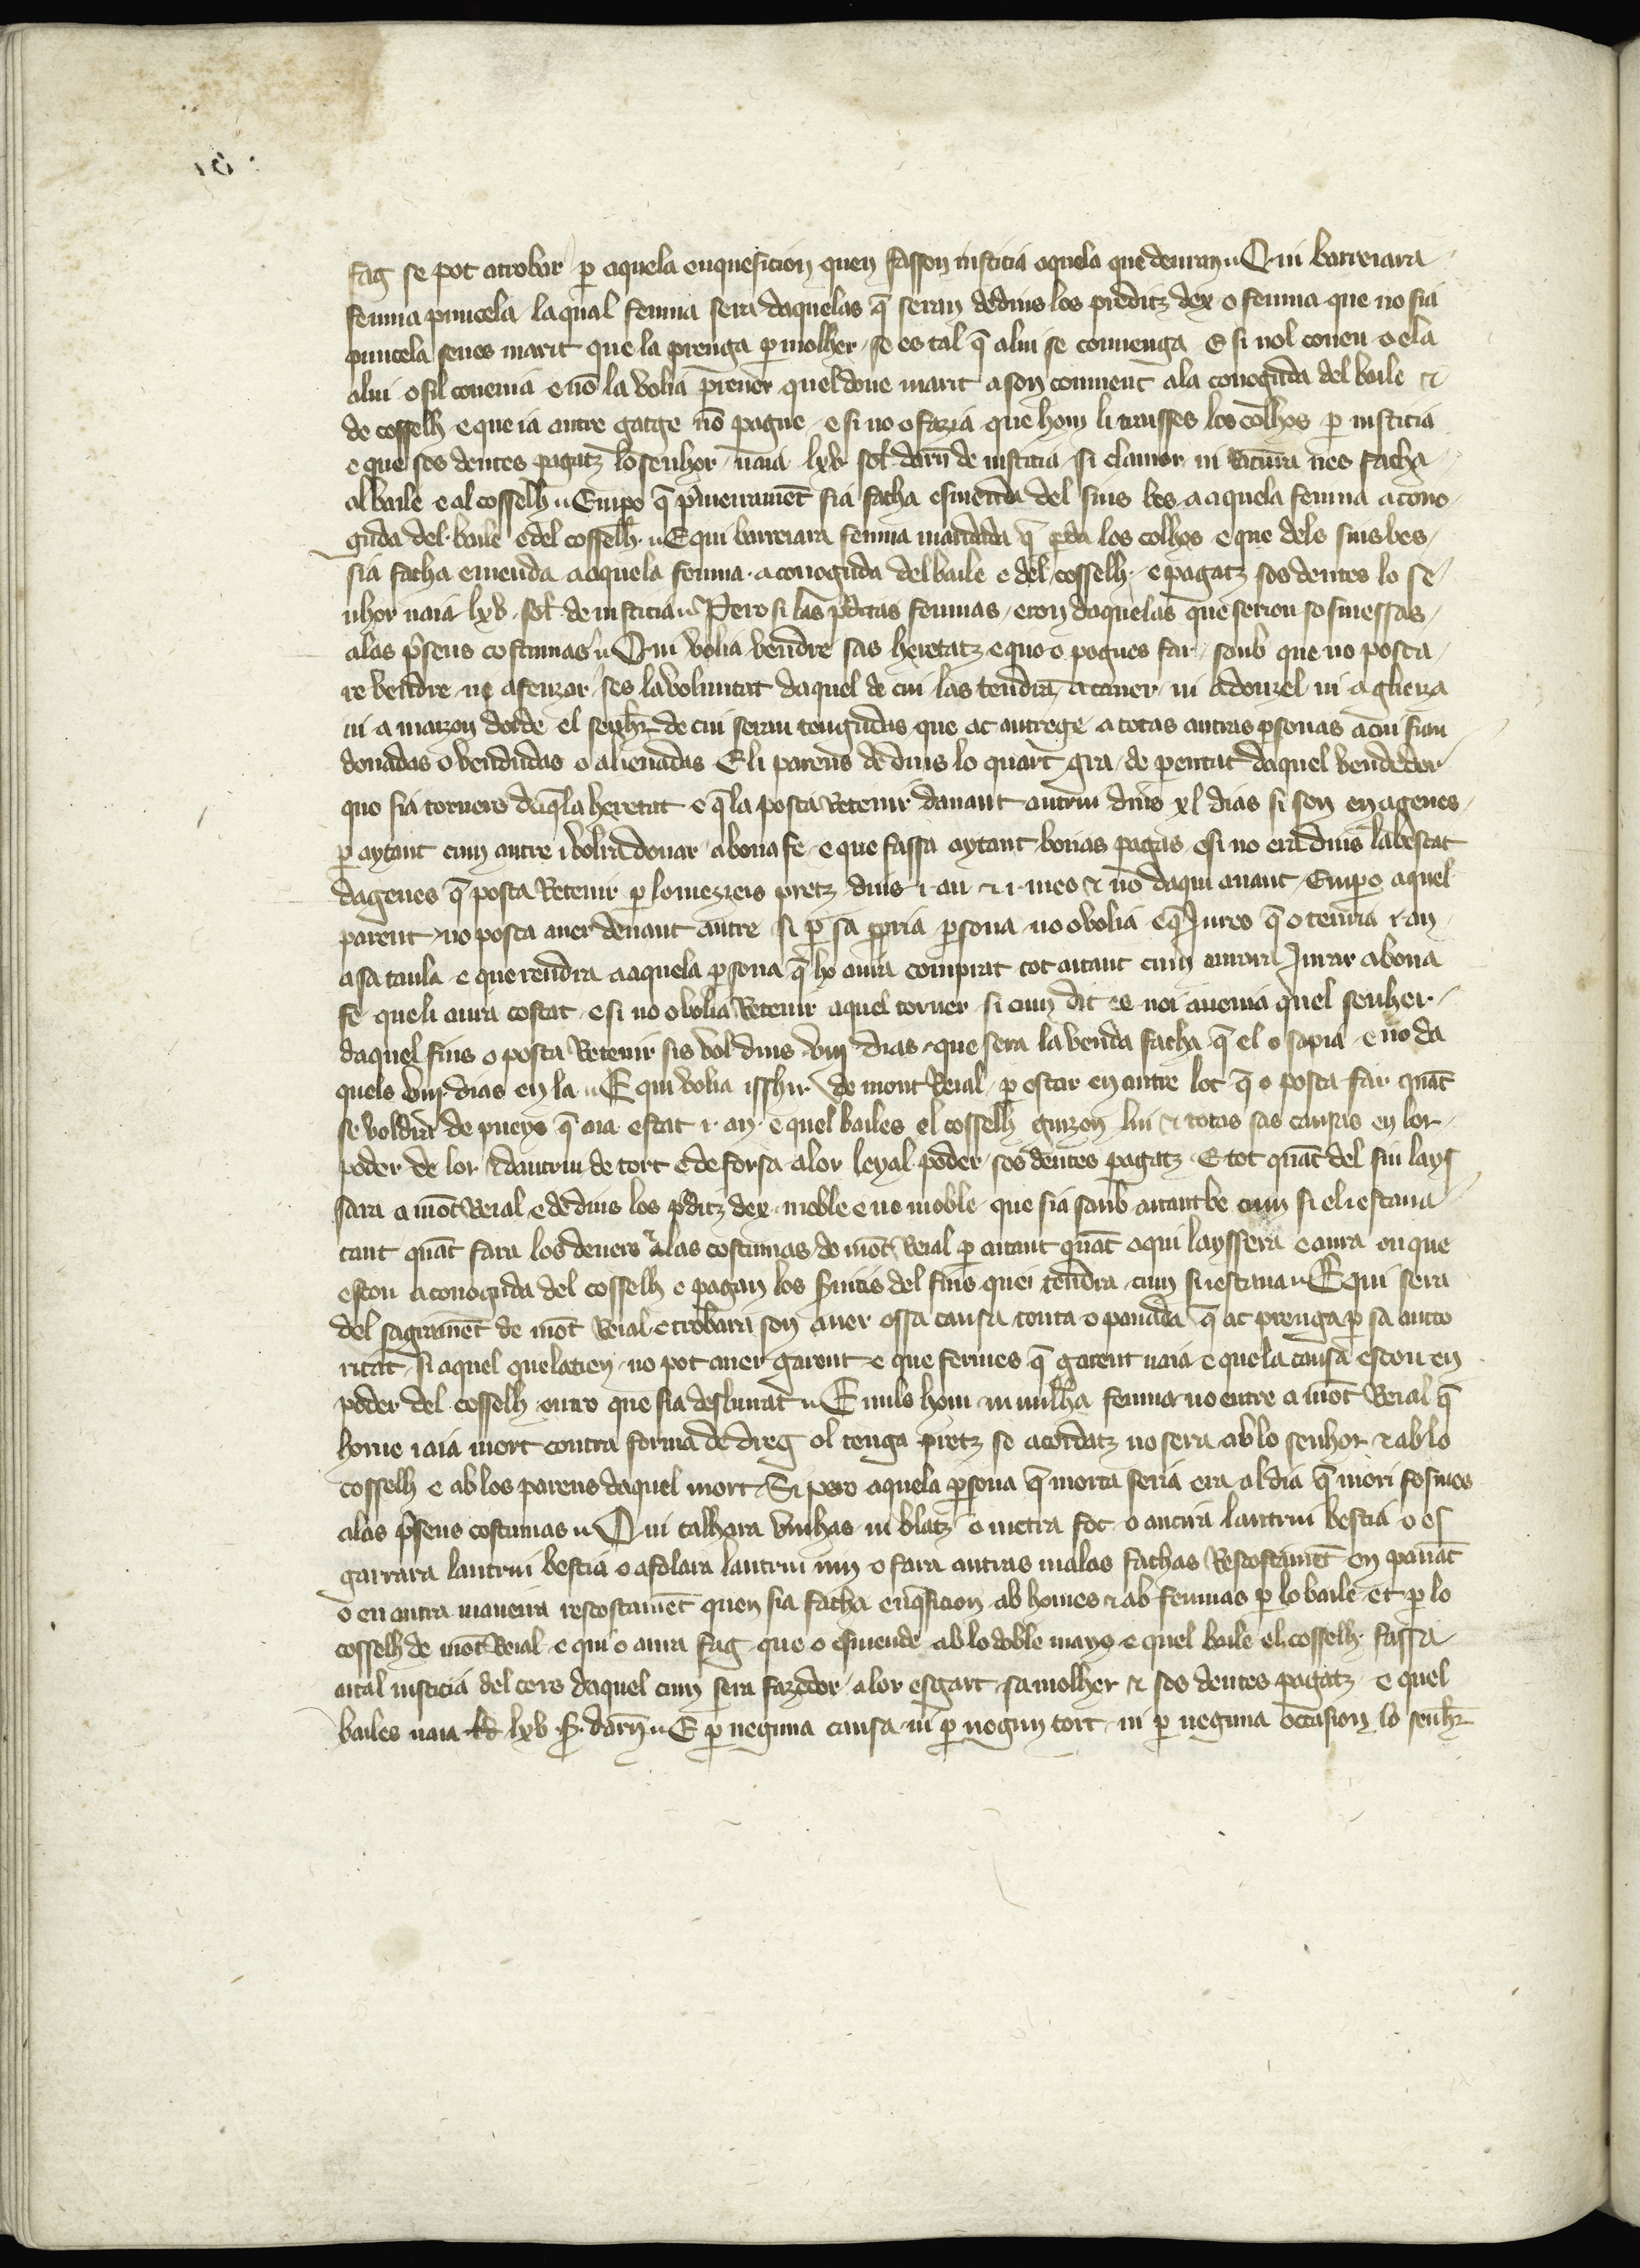 fag se pot atrobar per aquela enquesicion quen fasson iusticia aquela que deuran Qui barreiara
femna piucela laqual femna sera daquelas q̄ seran dedins los preditz dex o femna que no sia
piucela senes marit que la prenga ꝑ molher se es tal q̄ alui se conuenga E si nol conen o ela
alui o sil conenia e nō la volia p̄ener quel done marit a son conuent ala conoguda del baile et
de cosselh e que ia autre gatge nō pague e si no o fazia que hom li traisses los colhos ꝑ iusticia
e que ses deutes pagatz lo senhor naia lxv sol darn̄ de iusticia si clamor ni rancura nes facha
al baile e al cosselh Empo q̄ pͥmeirament sia facha esmenda del sius bes a aquela femna a cono
guda del baile e del cosselh E qui barreiara femna maridada q̄ ꝑda los colhos e que dels sius bes
sia facha emenda a aquela femna a conoguda del baile e del cosselh e pagatz sos deutes lo se
nhor naia lxv sol de iusticia Pero si las p̄dictas femnas eron daquelas que serion sosmessas
alas p̄sens costumas Qui volia vendre sas heretatz e quo o pogues far saub que no posca
re vendre ne afeuzar ses la voluntat daquel de cui las tendra a cauer ni a donzel ni a glieiza
ni a maizon dorde el senhor de cui seran tengudas que ac autrege a totas autras ꝑsonas a cui sian
donadas o vendudas o alienadas E li parens dedins lo quart gra de pentat daquel vendedor
quo sia torners daq̄la heretat e q̄ la posca retenir dauant autrui dins xl dias si son en agenes
ꝑ aytant cum autre i volra donar a bona fe e que fassa aytant bonas pagas e si no era dins labescat
dagenes q̄ posca retenir ꝑ lo mezieis pretz dins i an et i mes et nō daqui auant Empo aquel
parent no posca auer denant autre si ꝑ sa propria ꝑsona no o volia e q̄ iures q̄ o tenria i an
a sa taula e que rendra a aquela ꝑsona q̄ ho aura comprat tot aitant cum aurara iurar a bona
fe que li aura costat e si no o volia retenir aquel torner si cum dit es noi auenia quel senher
daquel fius o posca retenir sis vol dins viii dias que sera la venda facha q̄ el o sapia e no da
quels viii dias en la E qui volia isshir de mont reial ꝑ estar en autre loc q̄ o posca far quāt
se voldra de pueys q̄ aia estat i an e quel bailes el cosselh guizen lui et totas sas causas en lor
poder de lor et dautrui de tort e de forsa a lor leyal poder sos deutes pagatz E tot quāt del siu lays
sara a mōt reial e dedins los p̄ditz dex moble e no moble que sia saub aitantbe cum si el i estaua
tant quāt fara los deuers alas costumas de mōt reial ꝑ aitant quāt aqui layssera e aura en que
escou a conoguda del cosselh e pagan los seruicis del fius quei tendra cum si i estaua E qui sera
del sagramēt de mōt reial e trobara son auer o ssa causa touta o panada q̄ ac prenga ꝑ sa aucto
ritat si aquel que la tien no pot auer garent e que fermes q̄ garent naia e que la causa esteu en
poder del cosselh entro que sia desliurat E nuls hom ni nulha femna no entre a mōt reial q̄
home i aia mort contra forma de dreg ol tenga pretz se acordatz no sera ab lo senhor et ab lo
cosselh e ab los parens daquel mort Si pero aquela ꝑsona q̄ morta seria era al dia q̄ mori sosmes
alas p̄sens costumas Qui talhara vinhas ni blatz o metra foc o aucira lautrui bestia o es
gairara lautrui bestia o afolara lautrui riu o fara autras malas fachas rescostamēt en panāt
o en autra maneira rescostamēt quen sia facha enq̄sicion ab homes et ab femnas ꝑ lo baile et ꝑ lo
cosselh de mōt reial e qui o aura fag que o esmende ab lo doble mays e quel baile el cosselh fassa
aital iusticia del cors daquel cum sera fazedor a lor esgart sa molher et sos deutes pagatz e quel
bailes naia lxv s. darn̄ E ꝑ neguna causa ni ꝑ negun tort ni ꝑ neguna occasion lo senhr̄